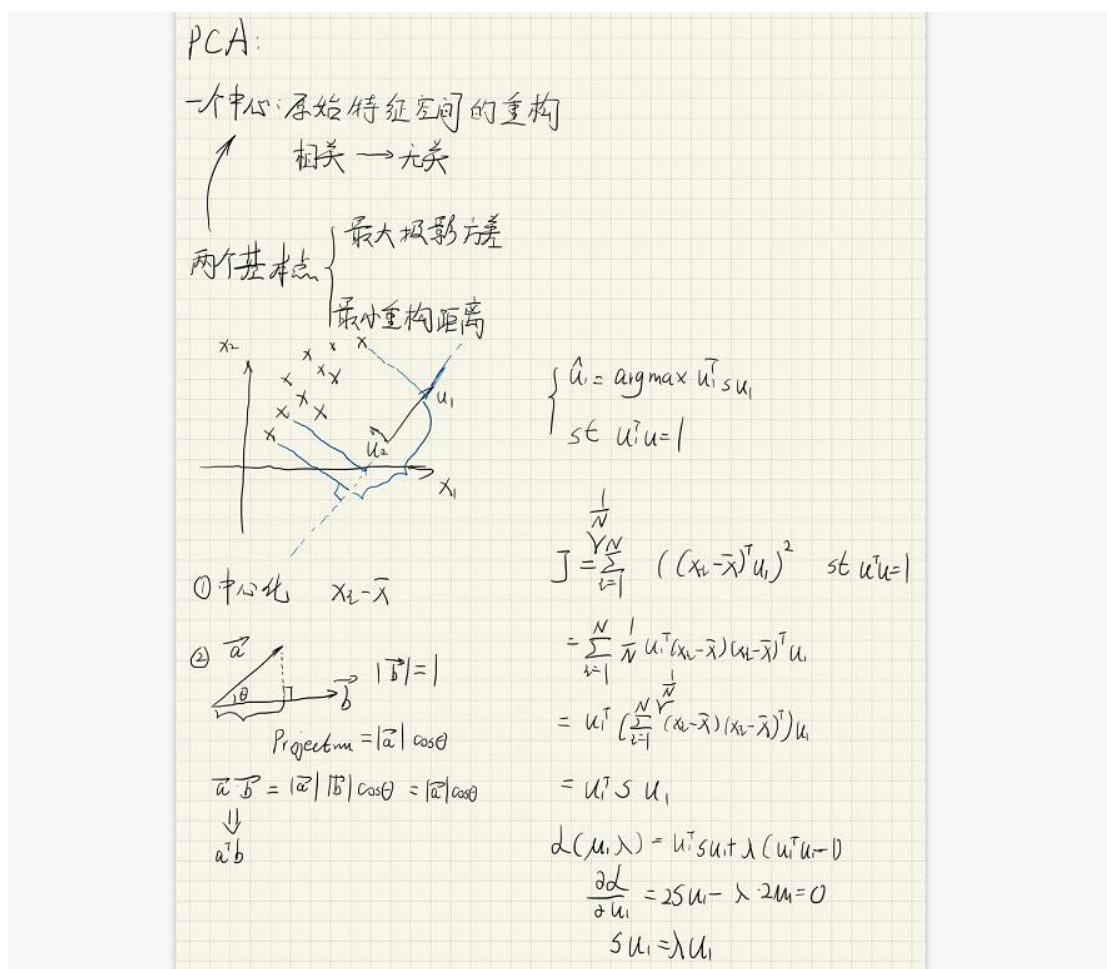 PCA:
一个中心:原始特征空间的重构
相关 → 无关
两个基本点 { 最大投影方差
最小重构距离
x₂
u₁
u₂
x₁
① 中心化 xᵢ-x̄
② a⃗ θ b⃗ |b⃗|=1
Projection = |a⃗| cosθ
a⃗·b⃗ = |a⃗| |b⃗| cosθ = |a⃗| cosθ
⇓
aᵀb
{ û₁ = argmax u₁ᵀ s u₁
st u₁ᵀu=1
J = 1/N ∑ᵢ₌₁ᴺ ((xᵢ-x̄)ᵀu₁)² st uᵀu=1
= ∑ᵢ₌₁ᴺ 1/N u₁ᵀ(xᵢ-x̄)(xᵢ-x̄)ᵀu₁
= u₁ᵀ (1/N ∑ᵢ₌₁ᴺ (xᵢ-x̄)(xᵢ-x̄)ᵀ) u₁
= u₁ᵀ s u₁
L(u₁,λ) = u₁ᵀsu₁+λ(u₁ᵀu₁-1)
∂L/∂u₁ = 2Su₁-λ·2u₁=0
su₁=λu₁